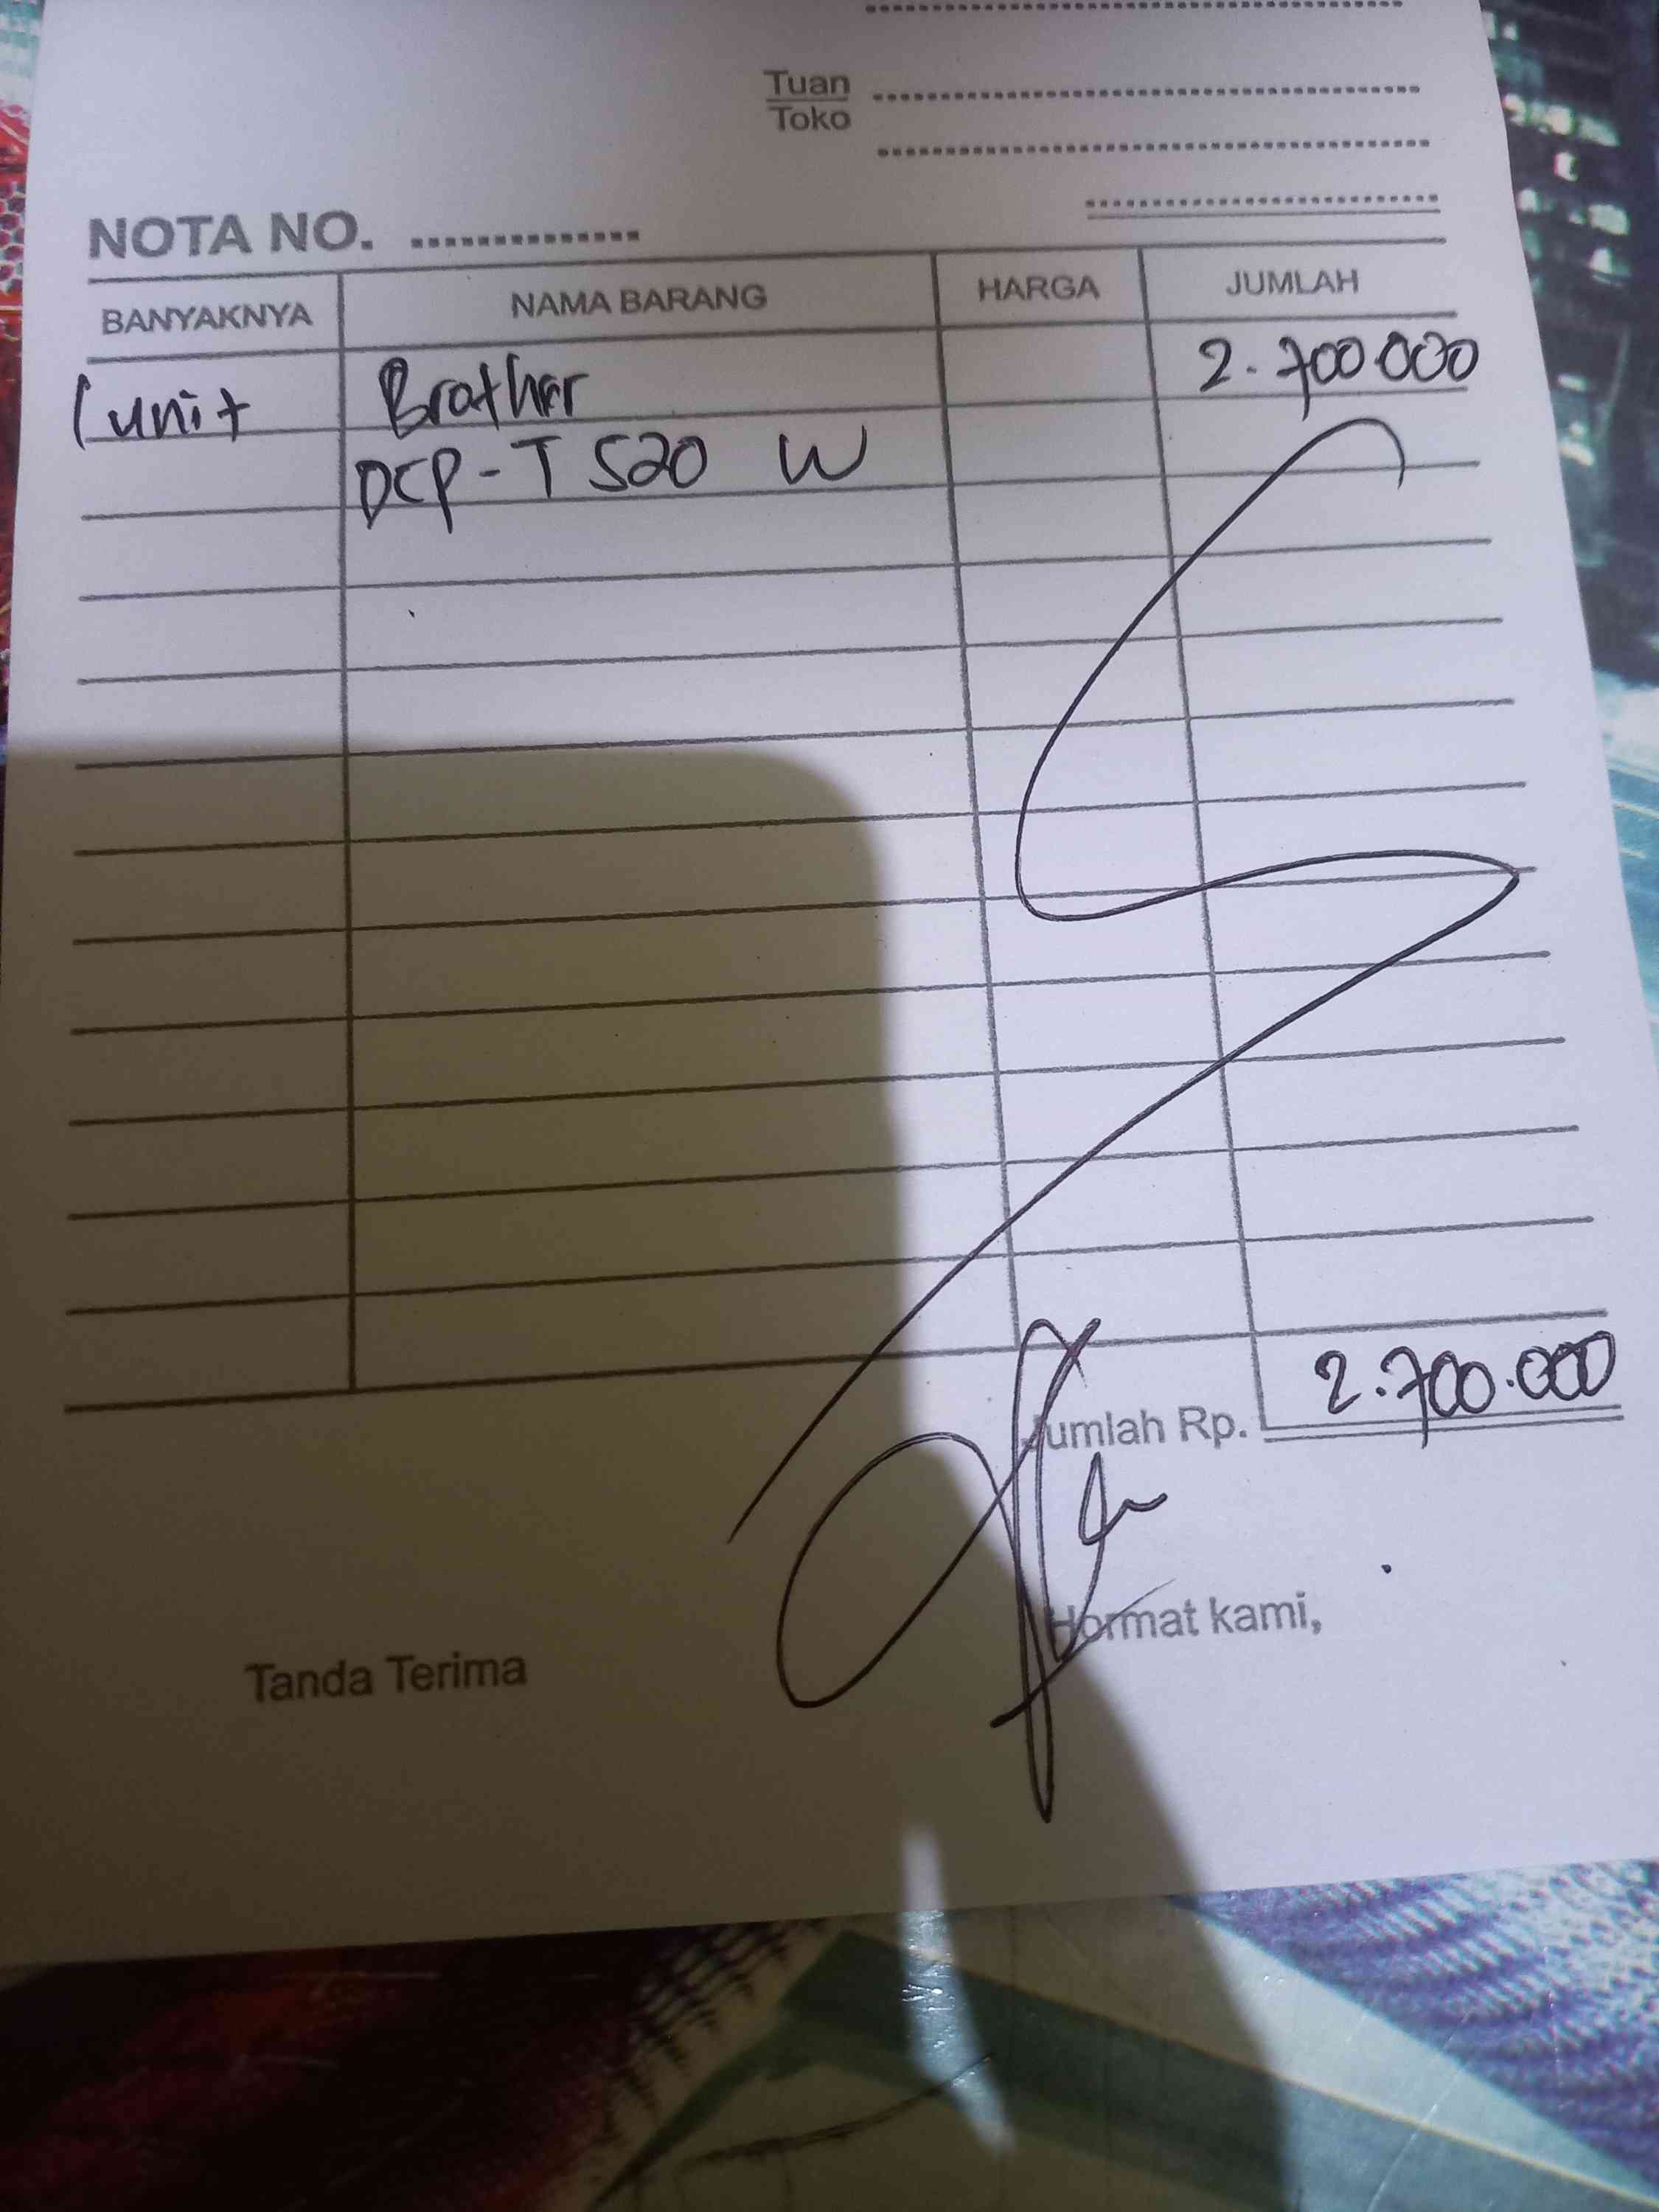 Tuan
Toko
NOTA NO. ...............
BANYAKNYA NAMA BARANG HARGA JUMLAH
1 unit Brother 2.700.000
DCP-T520 W
Jumlah Rp. 2.700.000
Tanda Terima Hormat kami,